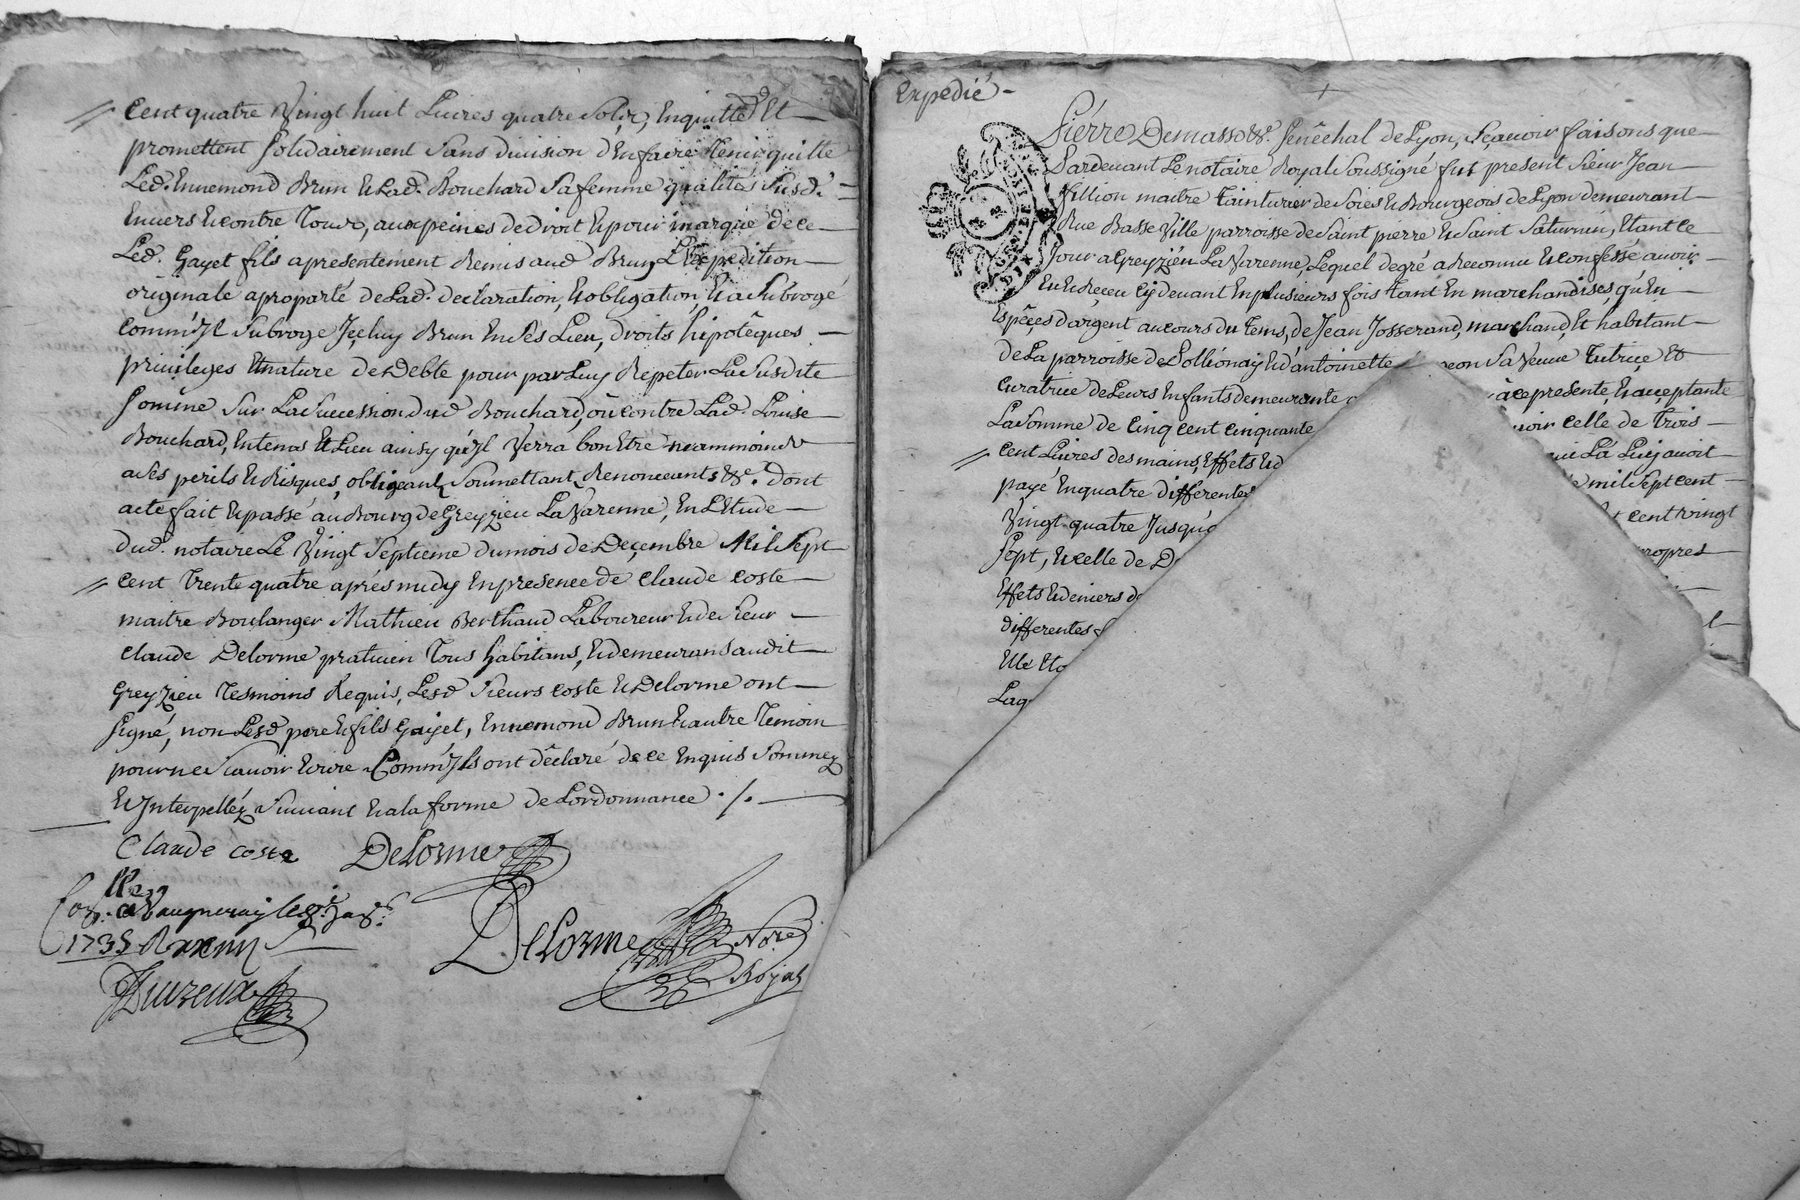 cent quatre Vingt huit Livres quatre Solz, Enquitte Et
promettent Solidairement Sans division d'En faire Tenir quitte
Led. Ennemond Brun Et Lad. Bouchard Sa femme qualités Susd.
Envers Et contre Tous, aux peines de Droit Et pour marque de ce
Led. Gayet fils a presentement Remis aud Brun L'Expedition
originale a proparté de Lad. declaration, Et obligation, Et a Subrogé
comm'Jl Subroge Jceluy Brun En Ses Lieu, droits hipotêques
privileges Et nature de Debte pour par Luy Repeter La Susdite
Somme Sur La Succession dud Bouchard, où contre Lad. Louise
Bouchard, En tems Et Lieu ainsy qu'Jl Verra bon Etre neammoins
a Ses perils Et Risques, obligeant, Soumettant, Renonceants &c. Dont
acte fait Et passé au Bourg de Greyzieu La Varenne, En L'Etude
dud. notaire Le Vingt Septieme du mois de Decembre Mil Sept
cent Trente quatre aprés midy En presence de Claude Coste
maitre Boulanger Mathieu Berthaud Laboureur Et de Sieur
Claude Delorme praticien Tous habitans, Et demeurans audit
Greyzieu Tesmoins Requis, Lesd Sieurs Coste Et Delorme ont
Signé, non Lesd pere Et fils Gayet, Ennemond Brun Et autre Temoin
pour ne Scavoir Ecrire Comm'Jls ont dêclaré de ce Enquis Sommez
Et Interpellez Suivant Et a la forme de Lordonnance ./.
Claude coste Delorme
Vaugneray le
1735
Delorme Nore
Royal
Expedié
Pierre Demasso &c. Senêchal de Lyon, Sçavoir faisons que
Pardevant Le notaire Royal Soussigné fut present Sieur Jean
fillion maitre tainturier de Soies Et Bourgeois de Lyon demeurant
Rue Basse Ville parroisse de Saint pierre Et Saint Saturnin, Etant ce
Jour a Greyzieu La Varenne, Lequel de gré a Reconnu Et confessé avoir
Eu Et Reçeu Cy devant En plusieurs fois Tant En marchandises, qu'En
Espêçes d'argent au cours du Tems, de Jean Josserand, marchand, Et habitant
de La parroisse de Pollionay Et d'antoinette Sa Veuve Tutrice Et
curatrice de Leurs Enfants demeurante a ce presente, Et acceptante
La Somme de Cinq cent cinquante celle de Trois
cent Livres des mains, Effets Et Luy avoit
payé En quatre differentes mil Sept cent
Vingt quatre Jusqu'a cent vingt
Sept, Et celle de propres
Effets Et deniers
differentes